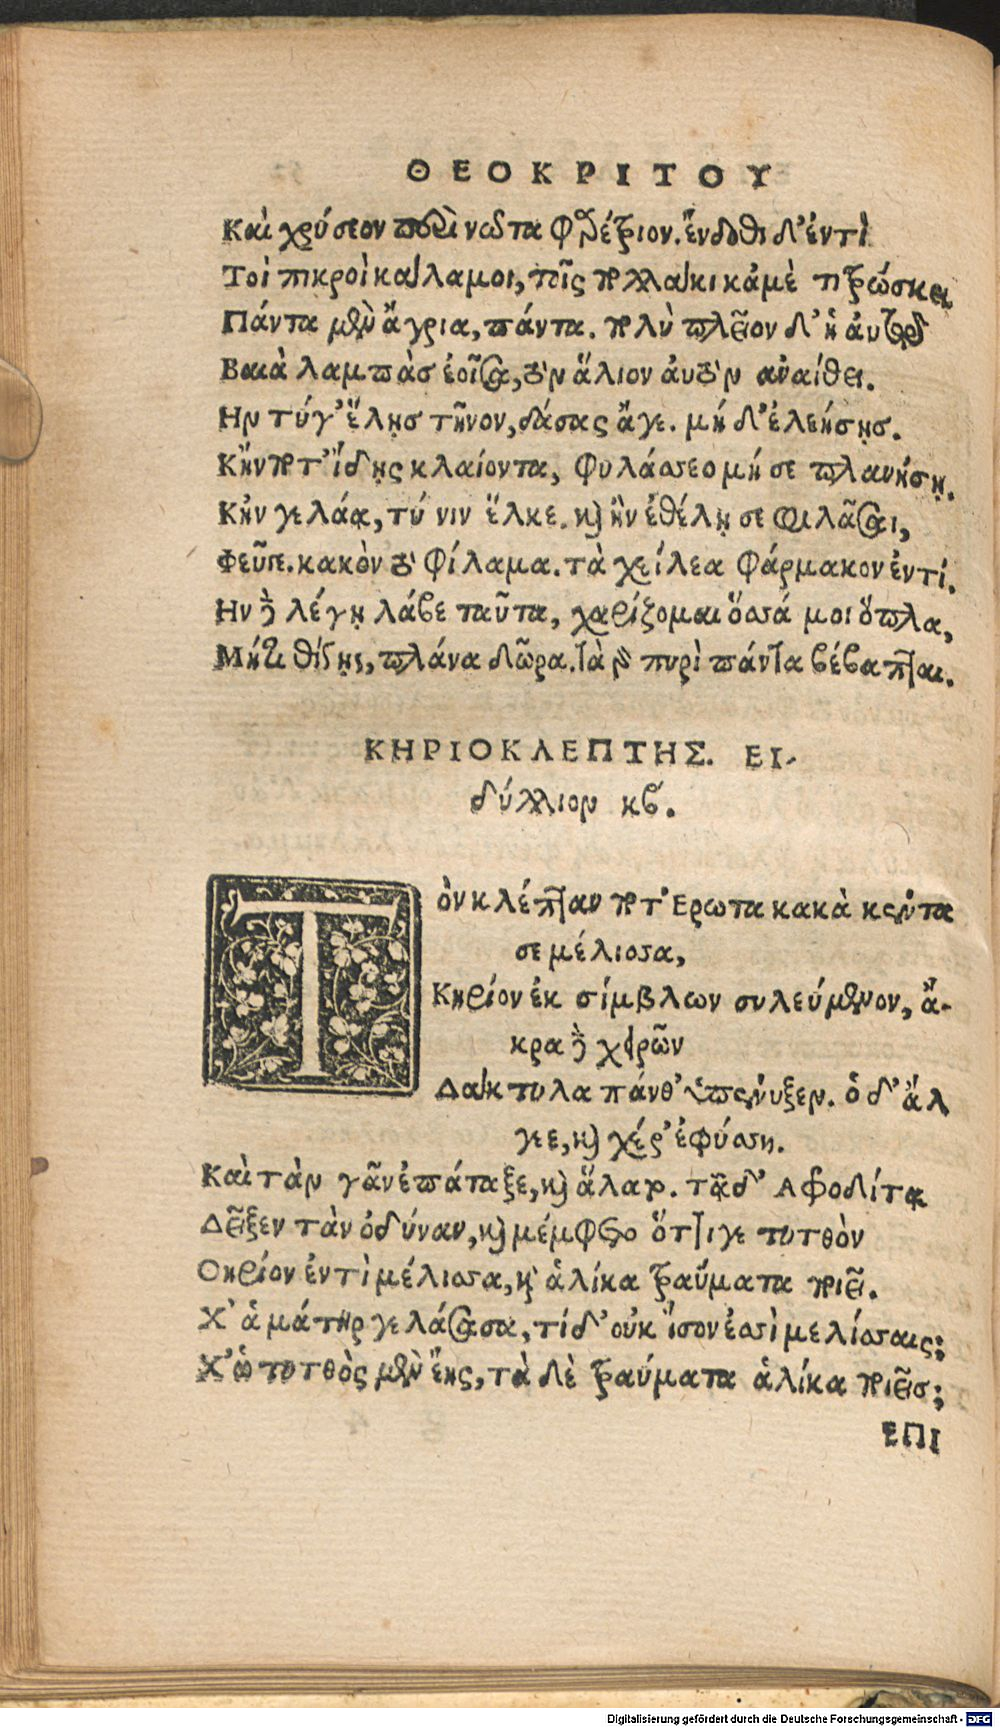 ΘΕΟΚΡΙΤΟΥ
Καὶ χρύσεον περὶ νῶτα φαρέτριον. ἔνδοθι δ' ἐντὶ
Τοὶ πικροὶ κάλαμοι, τοῖς πολλάκι κἀμὲ τιτρώσκει
Πάντα μὲν ἄγρια, πάντα. πολὺ πλεῖον δ' ἡ αὐτῷ
Βαιὰ λαμπὰς ἐοῖσα, τὸν ἅλιον αὐτὸν ἀναίθει.
Ην τύγ' ἕλῃσ τῆνον, δάσας ἄγε. μήδ' ἐλεήσῃσ.
Κἤν ποτ' ἴδῃς κλαίοντα, φυλάσσεο μή σε πλανήσῃ.
Κἢν γελάᾳ, τύ νιν ἕλκε. καὶ ἢν ἐθέλῃ σε φιλᾶσαι,
Φεῦγε. κακὸν τὸ φίλαμα. τὰ χείλεα φάρμακον ἐντί.
Ην δὲ λέγῃ λάβε ταῦτα, χαρίζομαι ὅσσά μοι ὅπλα,
Μήτι θίγῃς, πλάνα δῶρα. τὰ γὰρ πυρὶ πάντα βέβαπται.
ΚΗΡΙΟΚΛΕΠΤΗΣ. ΕΙ-
δύλλιον κβ.
Τὸν κλέπταν ποτ' Ερωτα κακὰ κέντα
σε μέλισσα,
Κηρίον ἐκ σίμβλων συλεύμενον, ἄ-
κρα δὲ χειρῶν
Δάκτυλα πάνθ' ὑπένυξεν. ὁ δ' ἄλ
γεε, καὶ χέρ' ἐφύσση.
Καὶ τὰν γᾶν ἐπάταξε, καὶ ἅλατο. τᾷ δ' Αφροδίτᾳ
Δεῖξεν τὰν ὀδύναν, καὶ μέμφετο ὅττι γε τυτθὸν
Θηρίον ἐντὶ μέλισσα, καὶ ἁλίκα τραύματα ποιεῖ.
Χ' ἁ μάτηρ γελάσασα, τί δ' οὐκ ἴσον ἐσσὶ μελίσσαις;
Χ' ὡ τυτθὸς μὲν ἔῃς, τὰ δὲ τραύματα ἁλίκα ποιεῖσ;
ΕΠΙ
Digitalisierung gefördert durch die Deutsche Forschungsgemeinschaft - DFG